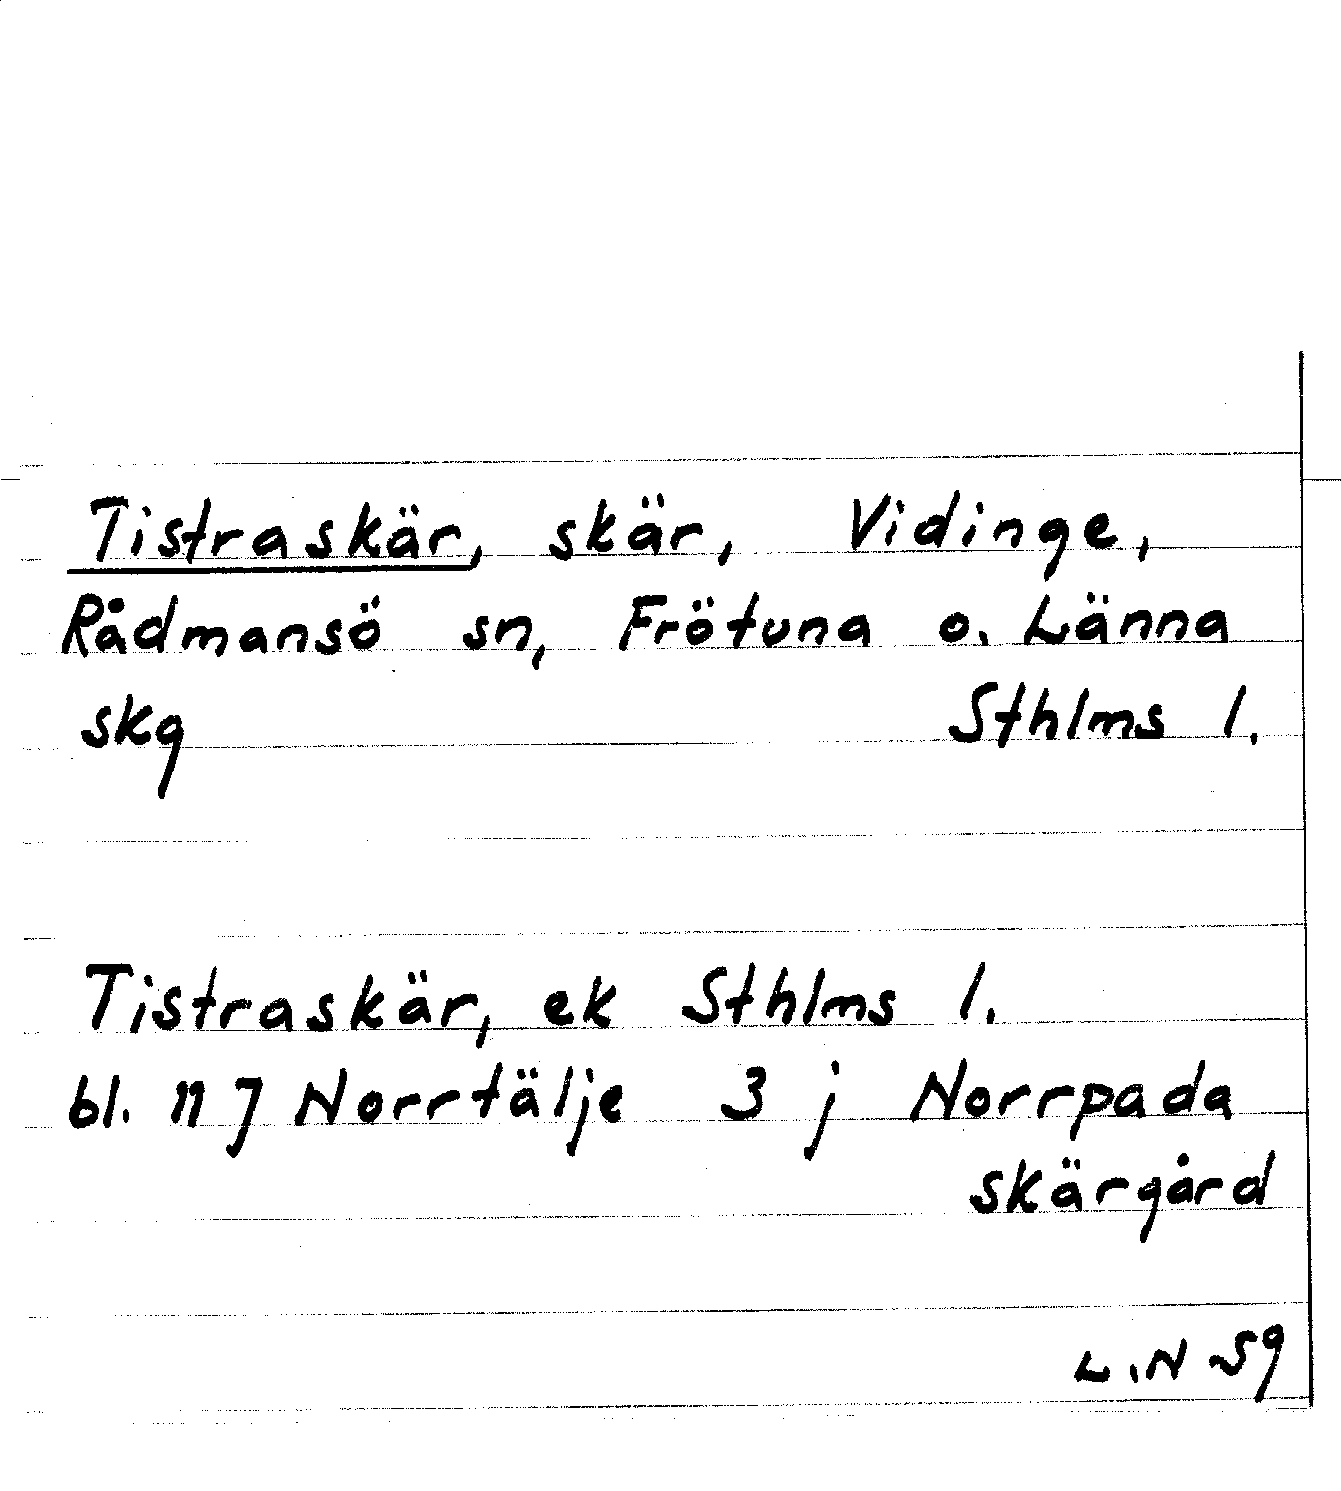 Tistraskär, skär, Vidinge,
Rådmansö sn, Frötuna o. Länna
skg Sthlms l.
Tistraskär, ek Sthlms l.
bl. 11 J Norrtälje 3 j Norrpada
skärgård
L.N 59